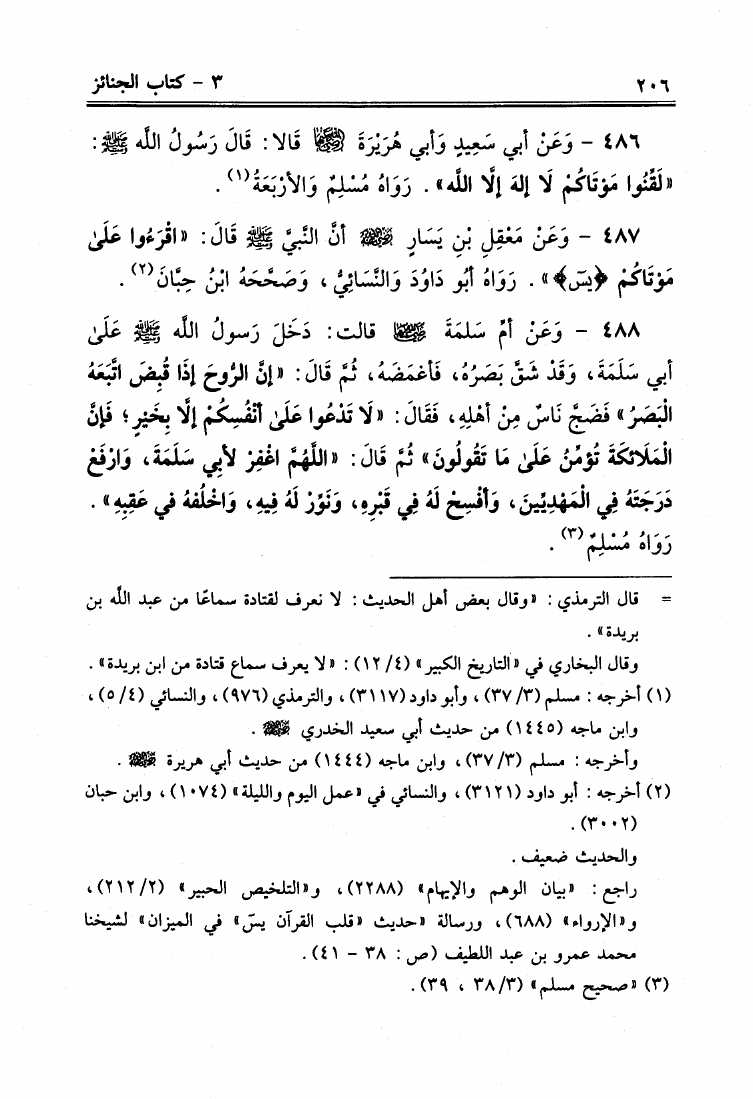 ٢٠٦ ٣ - كتاب الجنائز
٤٨٦ - وَعَنْ أبي سَعِيدٍ وَأبي هُرَيْرَةَ رضي الله عنهما قَالا: قَالَ رَسُولُ اللَّه ﷺ:
«لَقِّنُوا مَوْتَاكُمْ لَا إلهَ إلَّا اللَّه». رَوَاهُ مُسْلِمٌ وَالأرْبَعَةُ(١).
٤٨٧ - وَعَنْ مَعْقِلِ بْنِ يَسَارٍ رضي الله عنه أنَّ النَّبيَّ ﷺ قَالَ: «اقْرَءُوا عَلَىٰ
مَوْتَاكُمْ ﴿يسٓ﴾». رَوَاهُ أبُو دَاوُدَ وَالنَّسَائِيُّ، وَصَحَّحَهُ ابْنُ حِبَّانَ(٢).
٤٨٨ - وَعَنْ أمِّ سَلَمَةَ رضي الله عنها قالت: دَخَلَ رَسولُ اللَّه ﷺ عَلَىٰ
أبي سَلَمَةَ، وَقَدْ شَقَّ بَصَرُهُ، فَأغمَضَهُ، ثُمَّ قَالَ: «إنَّ الرُّوحَ إذَا قُبِضَ اتَّبَعَهُ
الْبَصَرُ» فَضَجَّ نَاسٌ مِنْ أهْلِهِ، فَقَالَ: «لَا تَدْعُوا عَلَىٰ أنْفُسِكُمْ إلَّا بِخَيْرٍ؛ فَإنَّ
الْمَلَائكَةَ تُؤمِّنُ عَلَىٰ مَا تَقُولُونَ» ثُمَّ قَالَ: «اللَّهُمَّ اغْفِرْ لأبِي سَلَمَةَ، وَارْفَعْ
دَرَجَتَهُ فِي الْمَهْدِيِّينَ، وَأفْسِحْ لَهُ فِي قَبْرِهِ، وَنَوِّرْ لَهُ فِيهِ، وَاخْلُفهُ في عَقِبِهِ».
رَوَاهُ مُسْلِمٌ(٣).
= قال الترمذي: «وقال بعض أهل الحديث: لا نعرف لقتادة سماعًا من عبد اللَّه بن
بريدة».
وقال البخاري في «التاريخ الكبير» (١٢/٤): «لا يعرف سماع قتادة من ابن بريدة».
(١) أخرجه: مسلم (٣٧/٣)، وأبو داود (٣١١٧)، والترمذي (٩٧٦)، والنسائي (٥/٤)،
وابن ماجه (١٤٤٥) من حديث أبي سعيد الخدري رضي الله عنه.
وأخرجه: مسلم (٣٧/٣)، وابن ماجه (١٤٤٤) من حديث أبي هريرة رضي الله عنه.
(٢) أخرجه: أبو داود (٣١٢١)، والنسائي في «عمل اليوم والليلة» (١٠٧٤)، وابن حبان
(٣٠٠٢).
والحديث ضعيف.
راجع: «بيان الوهم والإيهام» (٢٢٨٨)، و«التلخيص الحبير» (٢١٢/٢)،
و«الإرواء» (٦٨٨)، ورسالة «حديث «قلب القرآن يسٓ» في الميزان» لشيخنا
محمد عمرو بن عبد اللطيف (ص: ٣٨ - ٤١).
(٣) «صحيح مسلم» (٣٨/٣ ، ٣٩).